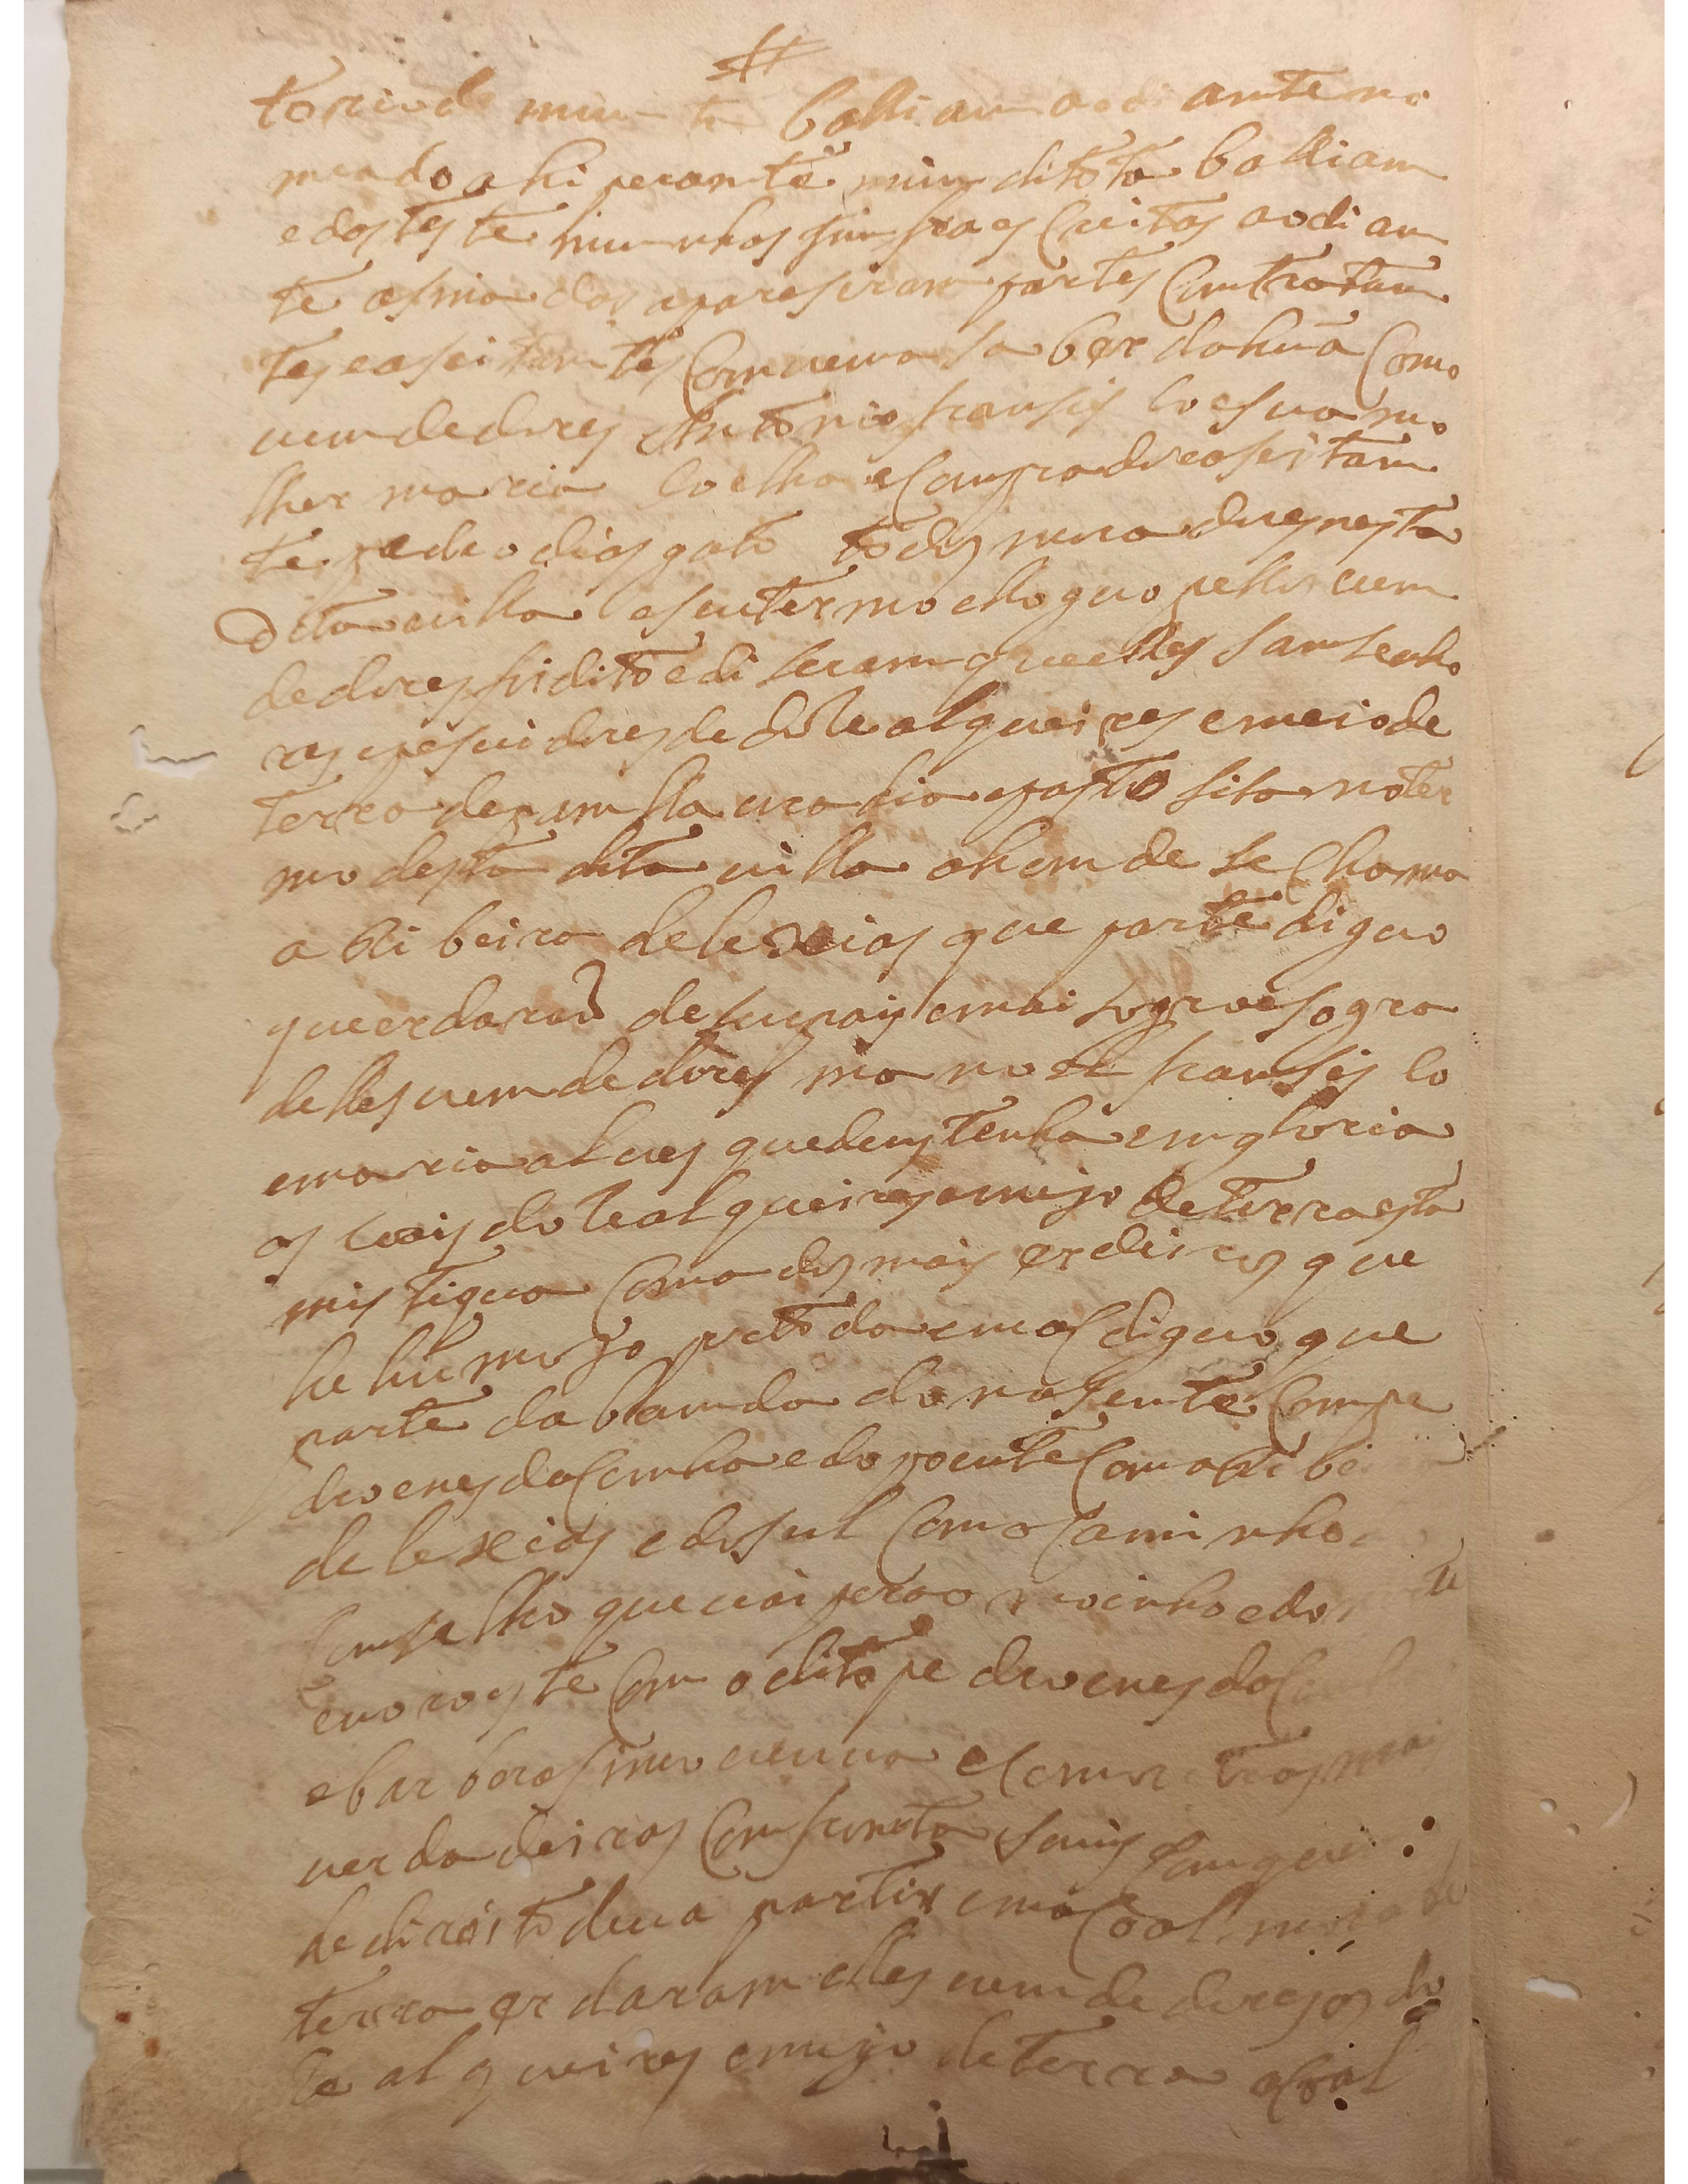 torio de mim ta balliam ao diante no
meado ahi perante mim dito ta balliam
e das teste munhas ao diam
te asinadas apareseram partes Contratam
tes easeitamtes Comvem a saber dahũa Como
vemdedores Antonio framsis Co e sua mo
lher maria Coelha e Comprador aseitam
te pedro dias gato todos moradores nesta
dita villa e seu termo e loguo pellos vem
dedores foi dito e diseram que elles sam senho
res e pesuidores de doze alqueires e meio de
terra de pam lla vradia e pasto sita no ter
mo desta dita villa ahomde se Chama
a Ribeira de lexias que parte diguo
que erdaram de seu pai e mai sogro e sogra
delles vemdedores manoel framsis Co
e maria alves que deus tenha em gloria
os Coais doze alqueires e mejo de terra esta
mistigua Com a dos mais erdeiros que
he hũ mojo diguo que
parte da bamda do nasente Com pe
dro enes da Cunha e do poente Com a Ribei
de lexias e do sul Com o Caminho
Comselho que vai pera o moinho e do
e noroeste Com o dito pedro enes da
e barbora viuva e Com
verdadeiras Comfromta
de direito deva partir e
terra erdaram elles vemdedores os do
ze alqueires e mejo de terra a Coal